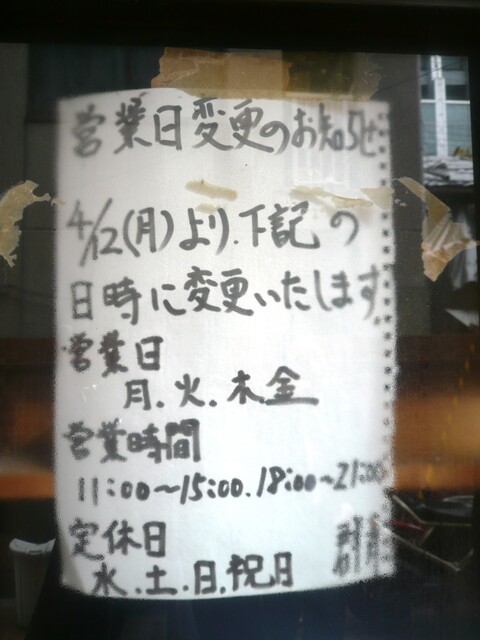 営業日変更のお知らせ
4/12(月)より.下記の
日時に変更いたします.
営業日
月.火.木金
営業時間
11:00〜15:00.18:00〜21:00
定休日
水.土.日.祝日